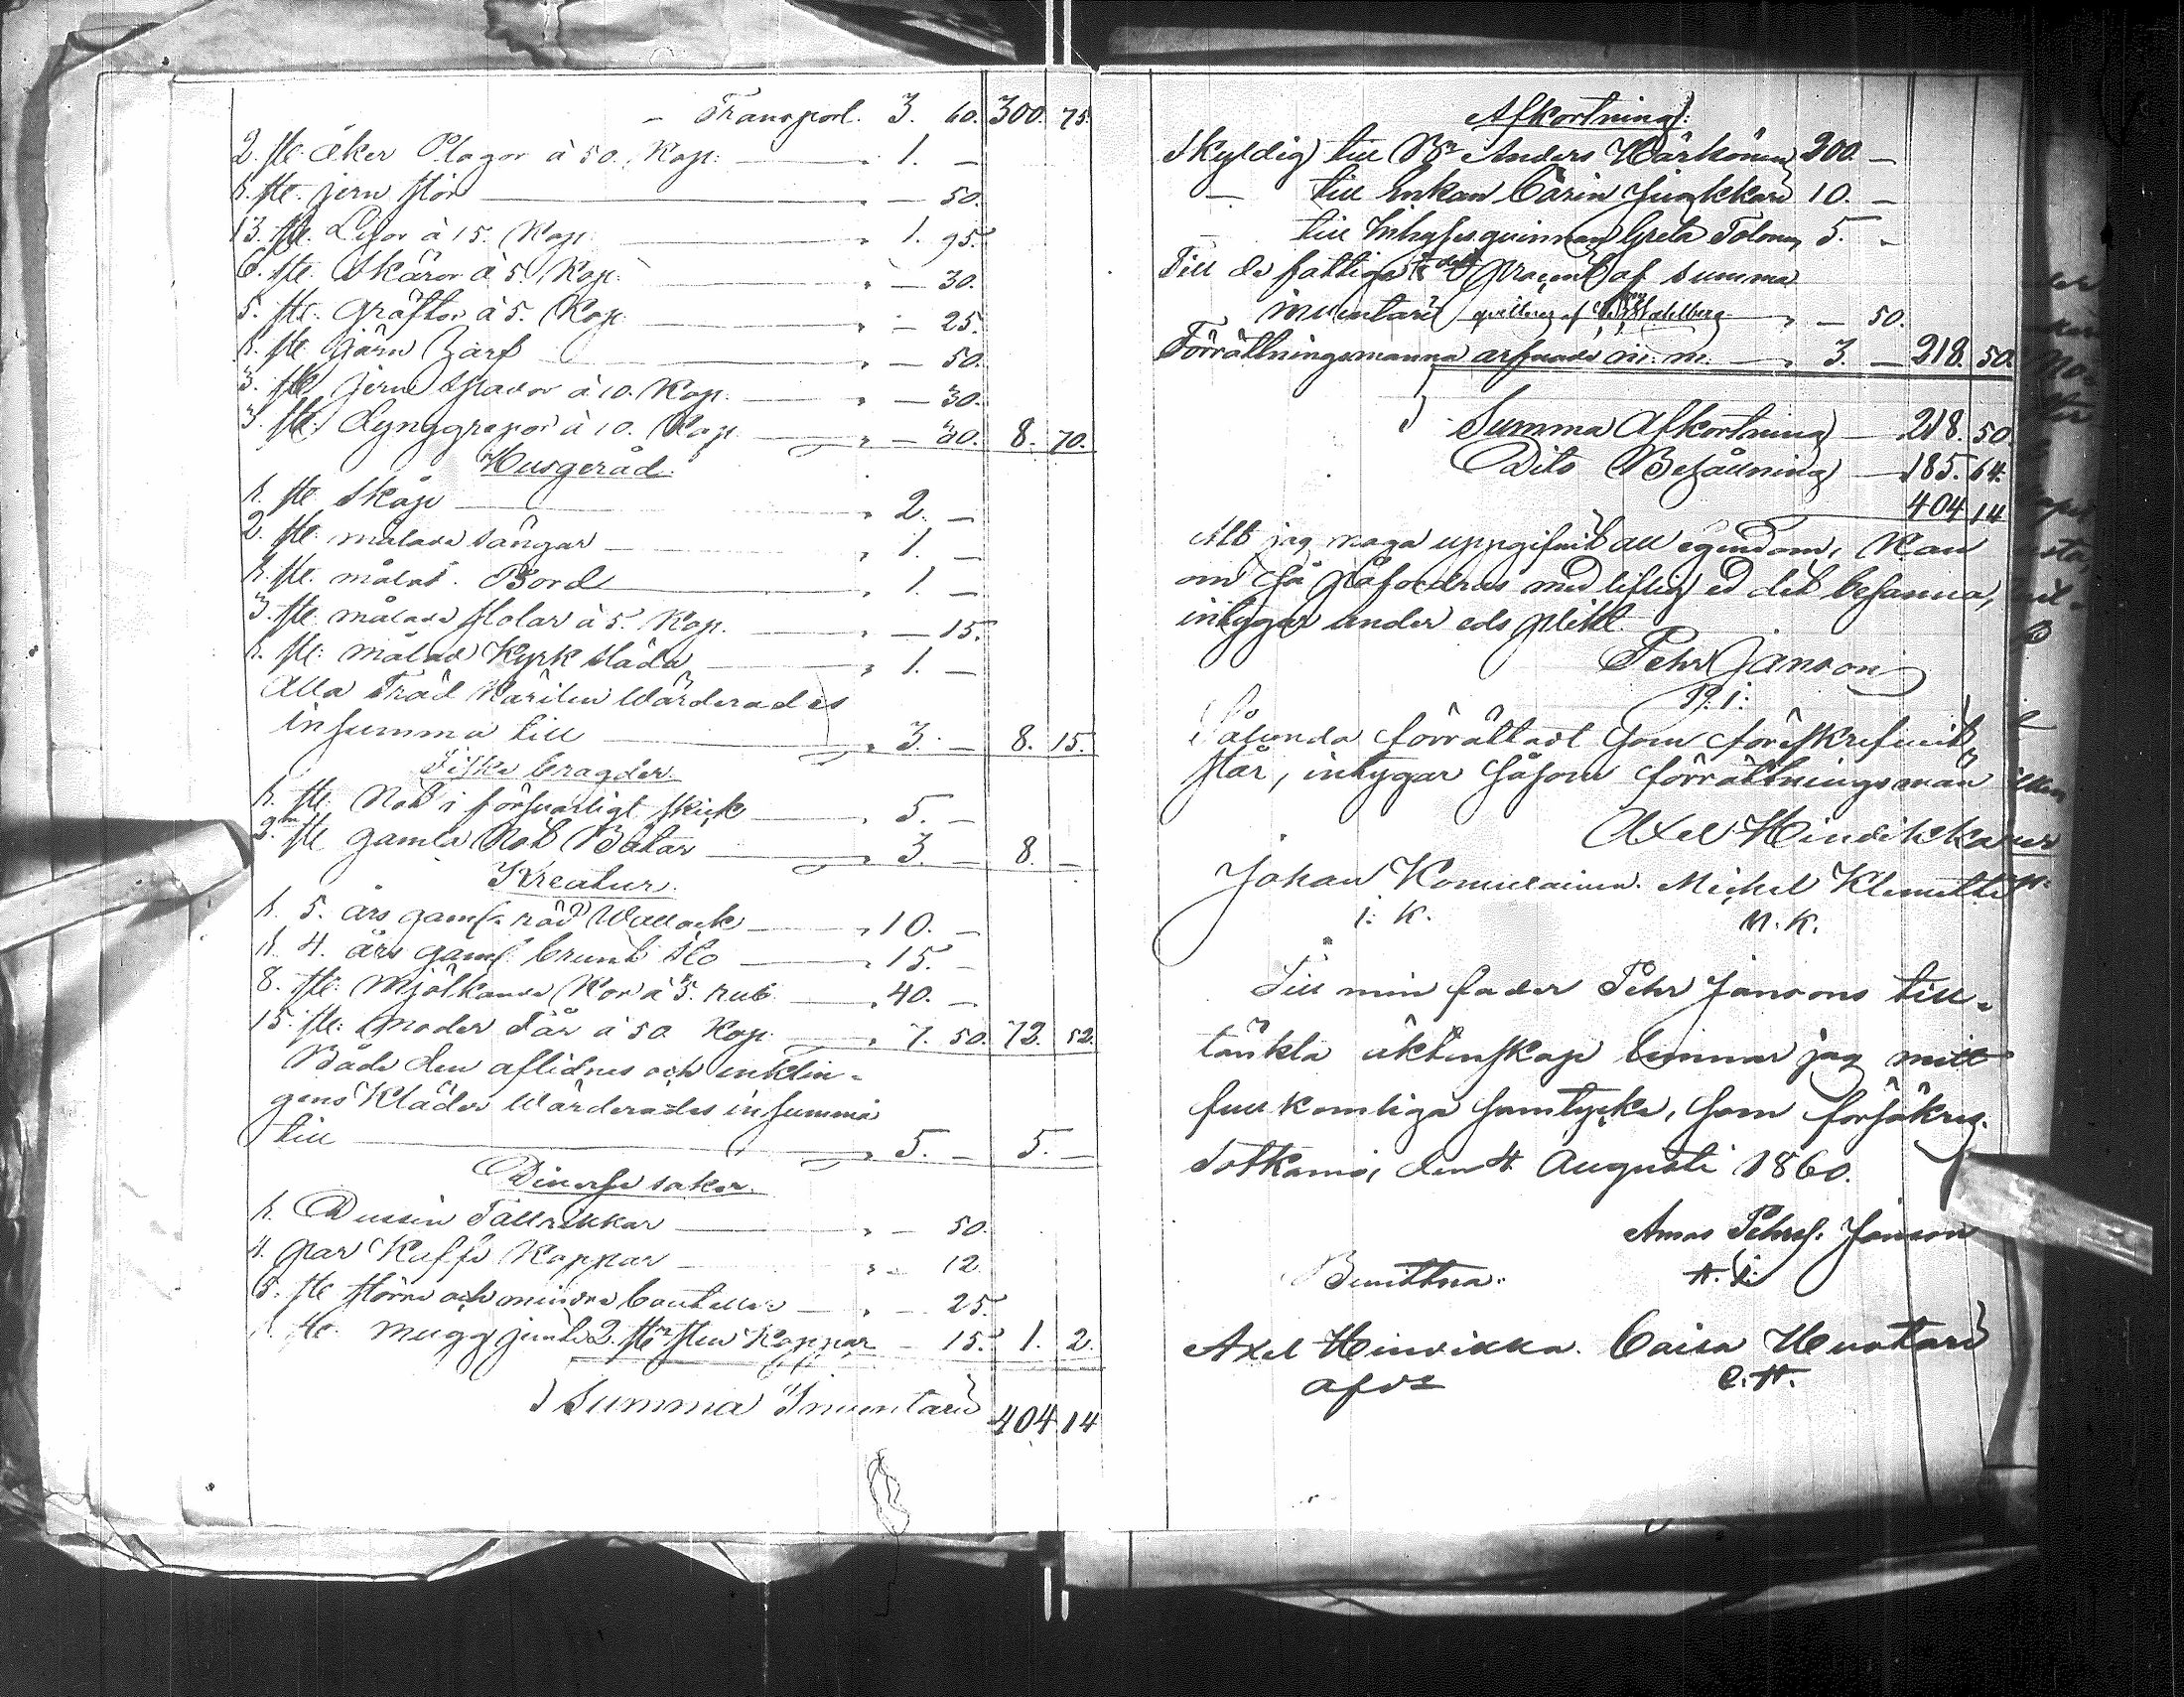 Transport. 3. 60. 300. 75.
2. st: åker Plogar à 50. Kop: 1. —
1. st: jern stör — 50.
13. st: Lijor à 15. Kop: 1. 95.
6. st: Skäror à 5. Kop: — 30.
5. st: gräftor à 5. Kop: — 25.
1. st: järn — 50.
3. st: jern spador à 10. Kop. — 30.
3. st: dynggrepor à 10. Kop. — 30. 8. 70.
Husgeråd.
1. st: Skåp 2. —
2. st: målade sängar 1. —
1. st: målat. Bord 1. —
3. st: målade stolar à 5. Kop. — 15.
1. st: målad Kyrk släda 1. —
Alla Träd Kärilen Wärderades
insumma till 3. — 8. 15.
Fiske bragder.
1. st: Not i försvarligt skick 5. —
2. st gamla Not Båtar 3. — 8. —
Kreatur.
1. 5. års gam: röd Wallack 10. —
1. 4. års gam: brunt Sto 15. —
8. st: Mjölkande Kor à 5. rub. 40. —
15. st: moder Får à 50. Kop. 7. 50. 72. 52.
Både den aflidnes och enklin-
gens Kläder Wärderades insumma
till 5. — 5. —
Diverse saker.
1. Dussin Tallrikkar — 50.
4. par Kaffe Koppar — 12.
5. st större och mindre bouteller — 25.
1. st. mugg jemte 2. st: sten Koppar — 15. 1. 2.
Summa Inventarii 404. 14
Afkortning:
Skyldig till Bn Anders Härkönen 200. —
— till Enkan Carin 10. —
— till Inhyses quinnan Greta Tolonen 5. —
Till de fattiga procent af summa
inventarii — 50.
Förrättningsmanna arfvode m: m. 3. — 218. 50.
Summa Afkortning 218. 50
Dito Behållning 185. 64.
404 14
Att jag noga uppgifvit all egendom, Kan
om så påfordras med liflig ed det besanna,
intygar under eds plikt.
Pehr Janson
P. J.
Sålunda förrättadt som föreskrefvit
står, intygar såsom förrättningsmän
Axel Heindikkainen
Johan Komulainen. Michel Klemetti
J. K. M. K.
Till min fader Pehr Jansons till-
tänkta äktenskap lemnar jag mitt
fullkomliga samtycke, som försäkras.
Sotkamo, den 4 Augusti 1860.
Amos Pehrs: Janson
Bevittna: A. J.
Axel Heindikka. Caisa Huotari
C. H.